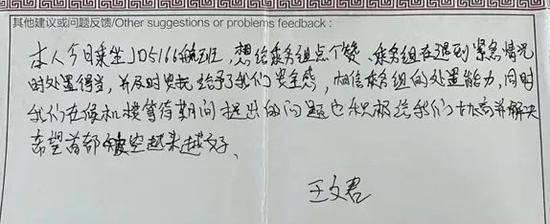 其他建议或问题反馈/Other suggestions or problems feedback:
本人今日乘坐JD5166航班，想给乘务组点个赞、乘务组在遇到紧急情况
时处置得当，并及时安抚给予了我们安全感，相信乘务组的处置能力，同时
我们在候机楼等待期间提出的问题也积极给我们协商并解决
希望首都航空越来越好、
王文君